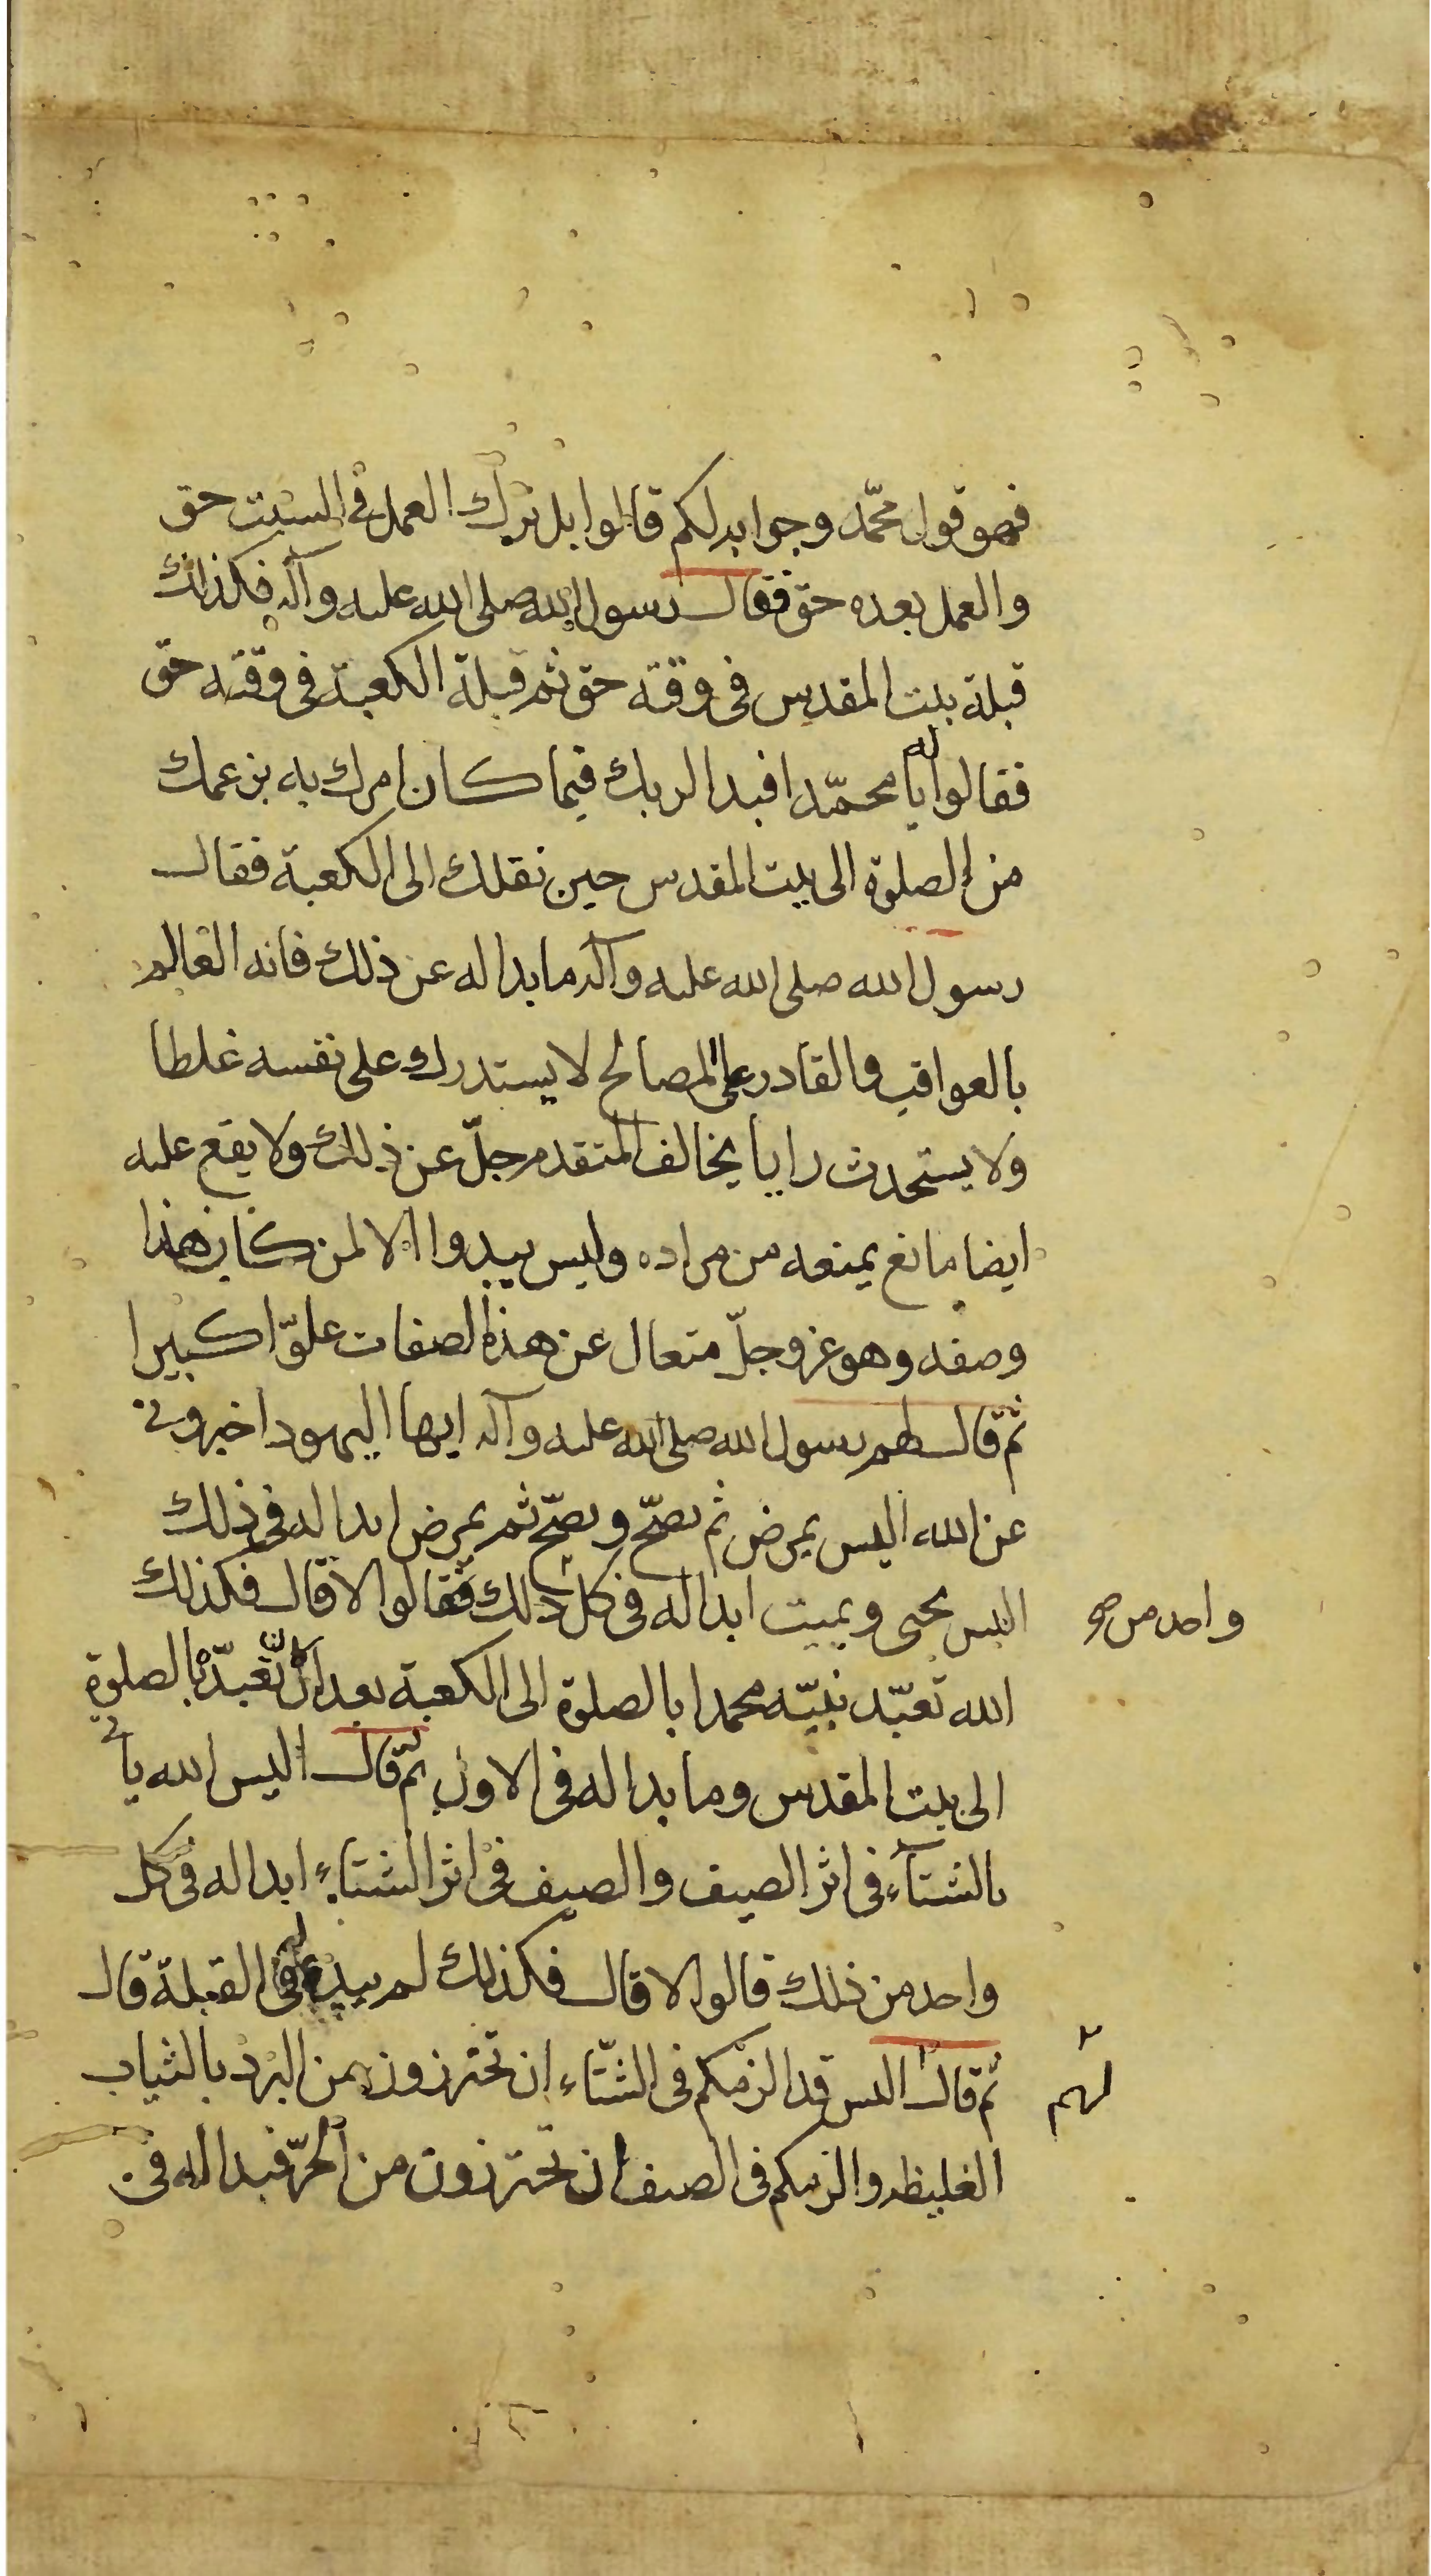 فهو قول محمّد وجوابه لكم قالوا بل ترك العمل في السبت حق
والعمل بعده حق فقال رسول الله صلى الله عليه وآله فكذلك
قبلة بيت المقدس في وقته حق ثم قبلة الكعبة في وقته حق
فقالوا له يا محمّد افبدا لربك فيما كان امرك به بزعمك
من الصلوة الى بيت المقدس حين نقلك الى الكعبة فقال
رسول الله صلى الله عليه وآله ما بدا له عن ذلك فانه العالم
بالعواقب والقادر على المصالح لا يستدرك على نفسه غلطا
ولا يستحدث رايا يخالف المتقدم جلّ عن ذلك ولا يقع عليه
ايضا مانع يمنعه من مراده وليس يبدوا الا لمن كان هذا
وصفه وهو عز وجلّ متعال عن هذه الصفات علوّا كبيرا
ثم قال لهم رسول الله صلى الله عليه وآله ايها اليهود اخبروني
عن الله اليس يمرض ثم يصحّ ويصحّ ثم يمرض ابدا له في ذلك
اليس يحيى ويميت ابدا له في كل ذلك فقالوا لا قال فكذلك
واحد من صح
الله تعبّد نبيّه محمدا بالصلوة الى الكعبة بعد ان تعبّده بالصلوة
الى بيت المقدس وما بدا له في الاول ثم قال اليس الله ياتي
بالشتآء في اثر الصيف والصيف في اثر الشتاء ابدا له في كل
واحد من ذلك قالوا لا قال فكذلك لم يبد له في القبلة قال
ثم قال اليس قد الزمكم في الشتّاء ان تحترزون من البرد بالثياب
لهم
الغليظه والزمكم في الصيف ان تحترزون من الحرّ فبدا له في